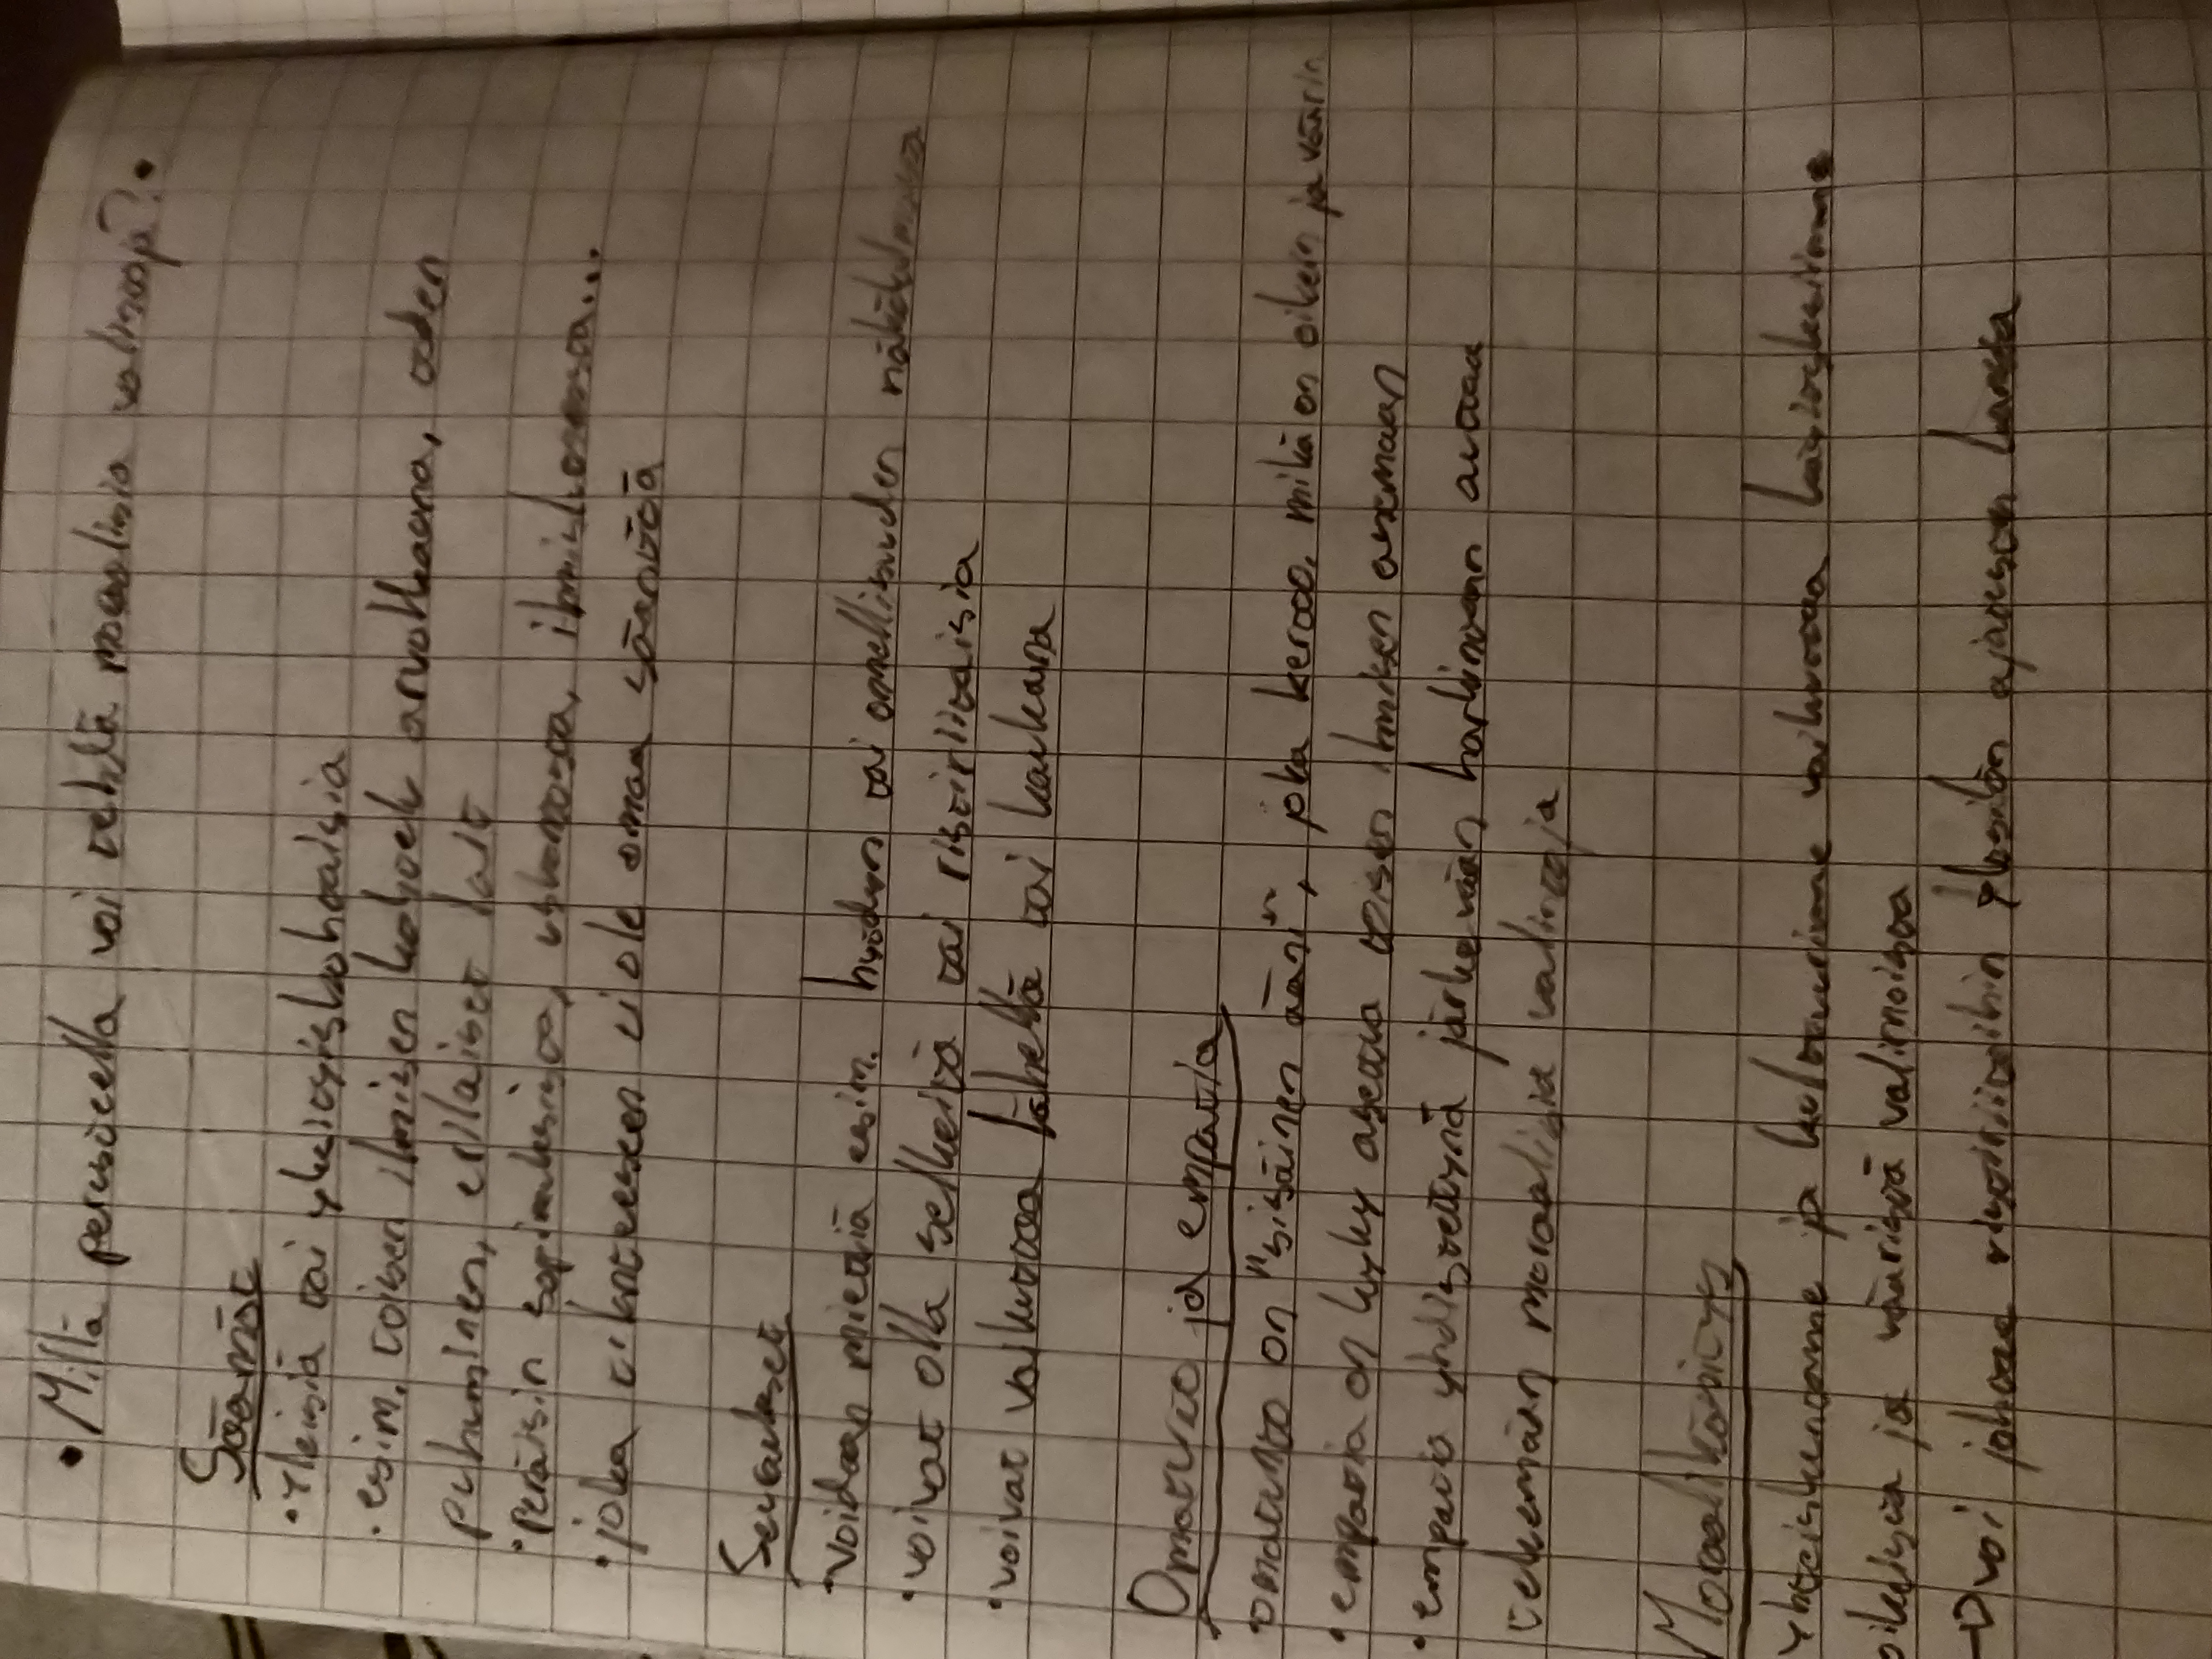 • Millä perusteella voi tehdä moraalisia valintoja? •
Säännöt
• Yleisiä tai yksityiskohtaisia
• esim. toisen ihmisen kohtelu arvokkaana, toden
puhuminen, erilaiset lait
• Peräisin sopimuksista, uskonnosta, ihmisluonnosta...
• joka tilanteeseen ei ole omaa sääntöä
Seuraukset
• Voidaan miettiä esim. hyödyn tai onnellisuuden näkökulmasta
• voivat olla selkeitä tai ristiriitaisia
• voivat vaikuttaa lähellä tai kaukana
Omatunto ja empatia
• omatunto on "sisäinen ääni", joka kertoo, mikä on oikein ja väärin
• empatia on kyky asettua toisen ihmisen asemaan
• empatia yhdistettynä järkevään harkintaan auttaa
tekemään moraalisia valintoja
Moraalikäsitys
Yhteiskuntamme ja kulttuurimme vaikuttaa käsityksiimme
oikeista ja vääristä valinnoista
→ voi johtaa ristiriitoihin yksilön ajatusten kanssa